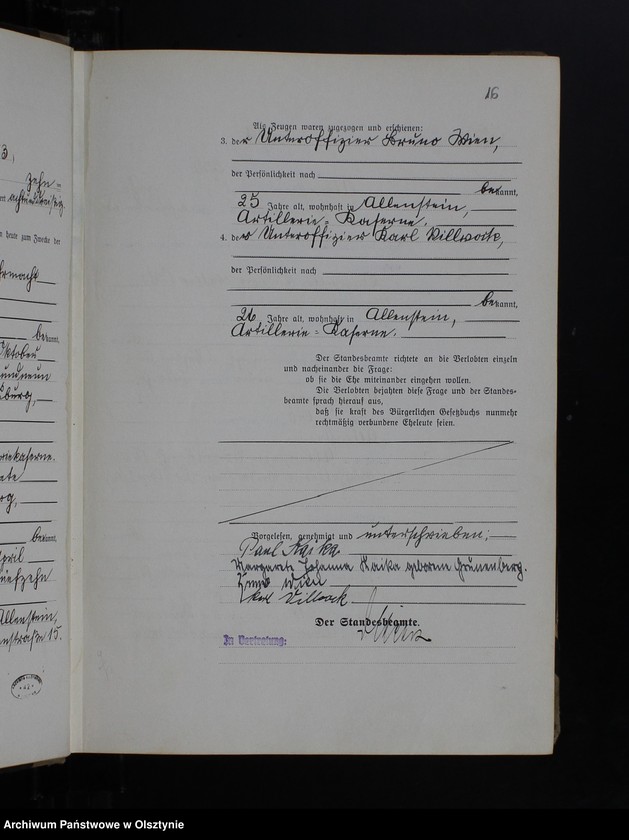 3,
zehn-
achtunddreißig
n heute zum Zwecke der
bekannt,
Oktober
burg,
bekannt,
April
fünfzehn
Allenstein,
straße 15.
16
Als Zeugen waren zugezogen und erschienen:
3. der Unteroffizier Bruno Wien,
der Persönlichkeit nach
bekannt,
25 Jahre alt, wohnhaft in Allenstein,
Artillerie-Kaserne.
4. der Unteroffizier Karl Villwock,
der Persönlichkeit nach
bekannt,
26 Jahre alt, wohnhaft in Allenstein,
Artillerie-Kaserne.
Der Standesbeamte richtete an die Verlobten einzeln
und nacheinander die Frage:
ob sie die Ehe miteinander eingehen wollen.
Die Verlobten bejahten diese Frage und der Standes-
beamte sprach hierauf aus,
daß sie kraft des Bürgerlichen Gesetzbuchs nunmehr
rechtmäßig verbundene Eheleute seien.
Vorgelesen, genehmigt und unterschrieben:
Paul Kaika
Margarete Johanna Kaika geborene Grunenberg.
Bruno Wien
Karl Villwock
Der Standesbeamte.
In Vertretung:
Archiwum Państwowe w Olsztynie